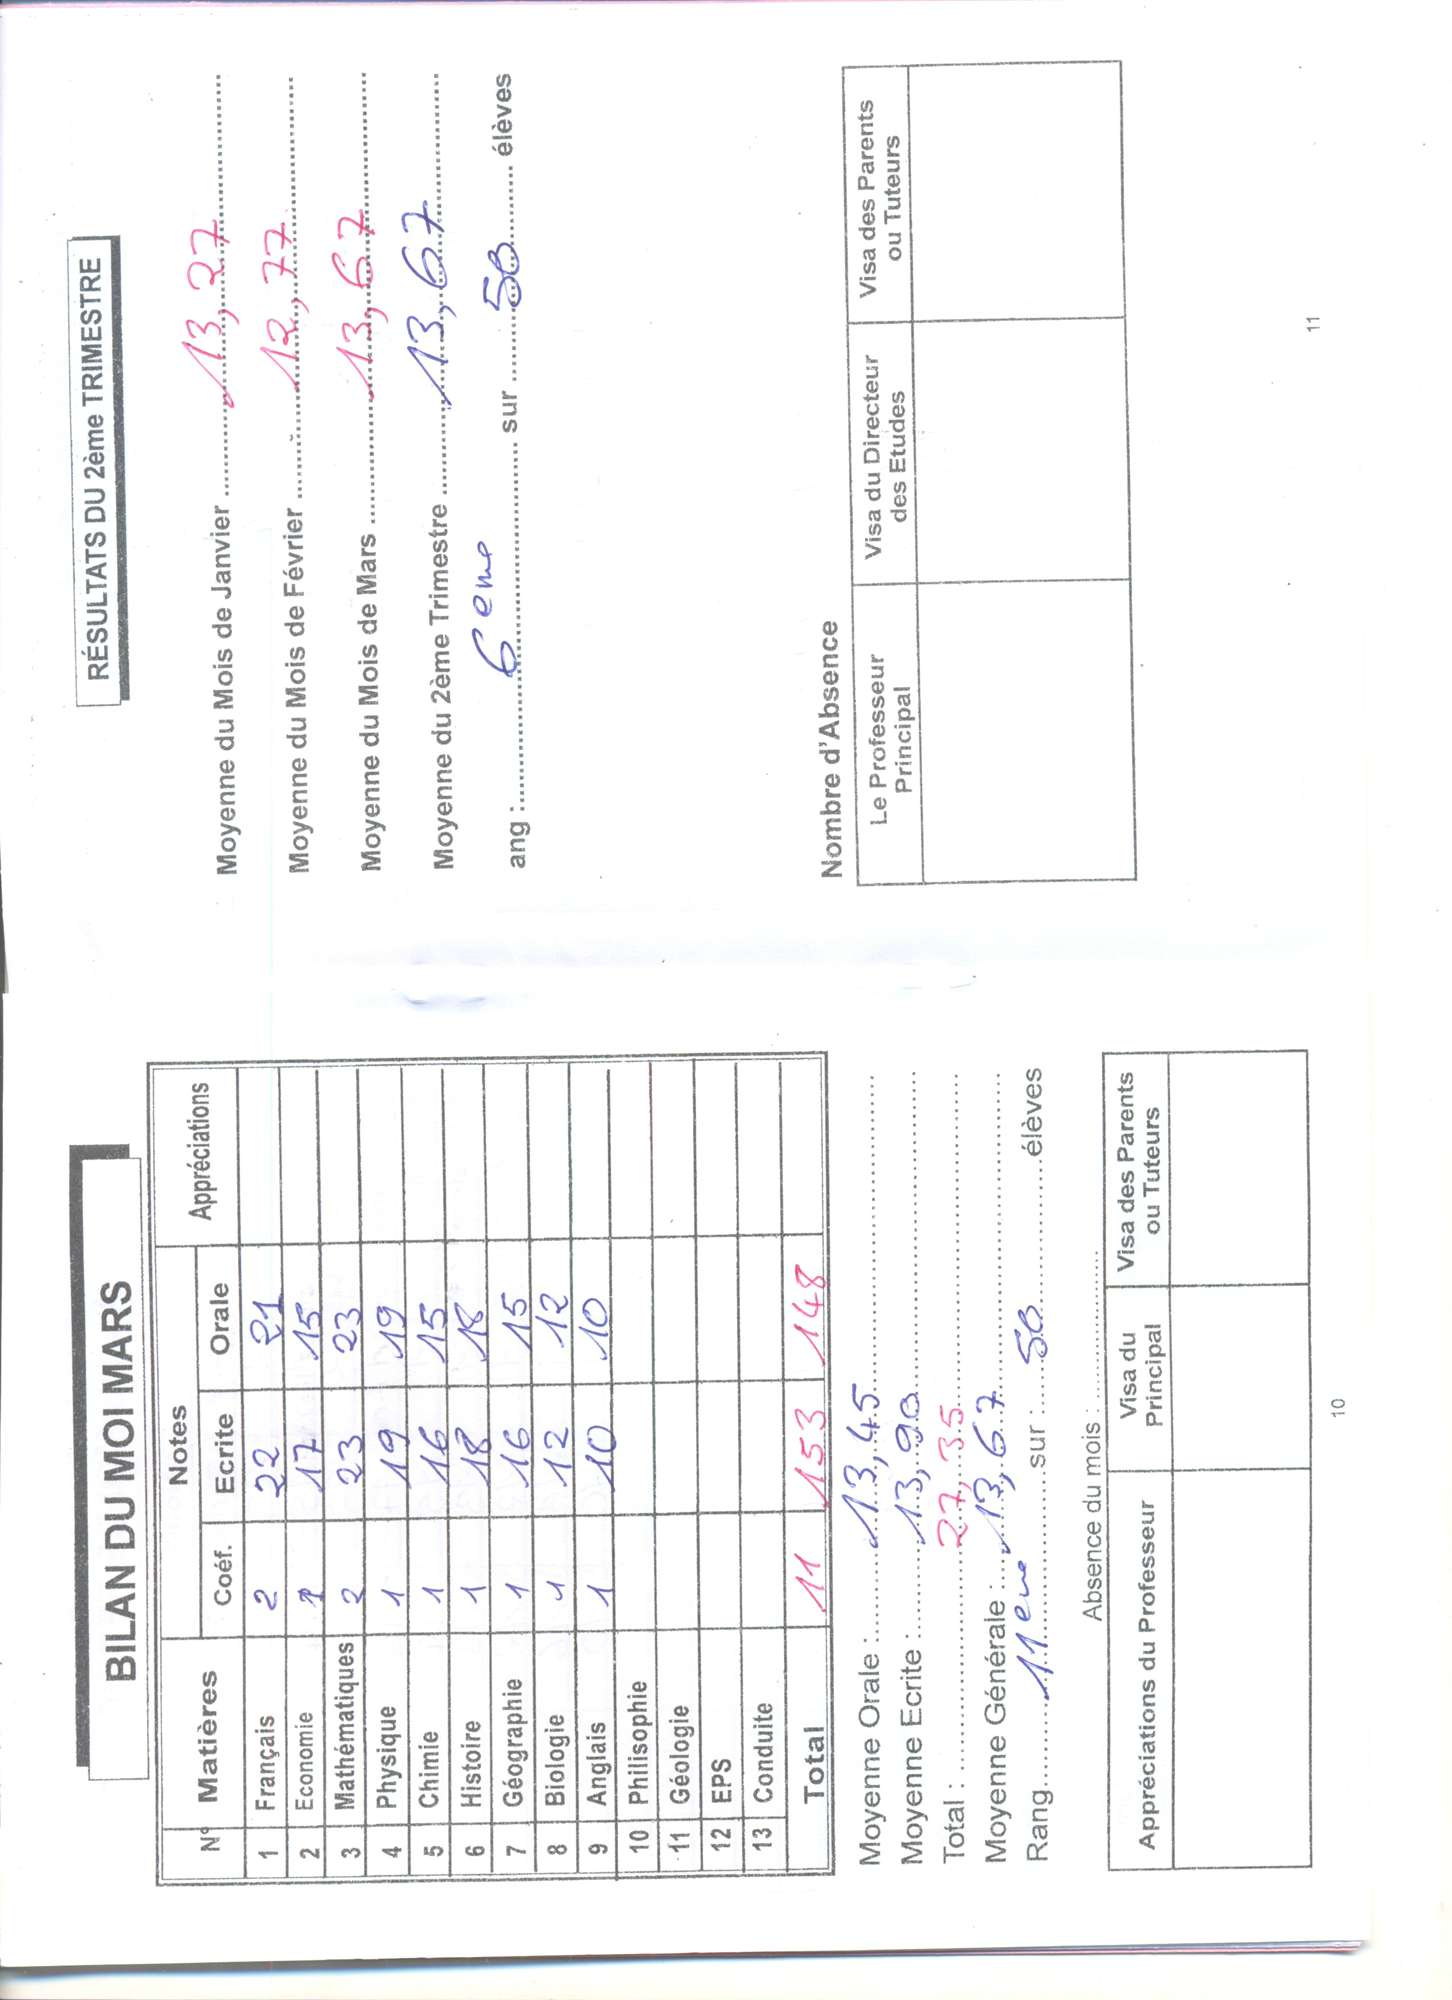 BILAN DU MOI MARS
N° Matières Notes Appréciations
Coéf. Ecrite Orale
1 Français 2 22 21
2 Economie 1 17 15
3 Mathématiques 2 23 23
4 Physique 1 19 19
5 Chimie 1 16 15
6 Histoire 1 18 18
7 Géographie 1 16 15
8 Biologie 1 12 12
9 Anglais 1 10 10
10 Philisophie
11 Géologie
12 EPS
13 Conduite
Total 11 153 148
Moyenne Orale : 13,45
Moyenne Ecrite : 13,90
Total : 27,35
Moyenne Générale : 13,67
Rang 11eme sur : 50 élèves
Absence du mois :
Appréciations du Professeur Visa du Principal Visa des Parents ou Tuteurs
10
RÉSULTATS DU 2ème TRIMESTRE
Moyenne du Mois de Janvier 13,27
Moyenne du Mois de Février 12,77
Moyenne du Mois de Mars 13,67
Moyenne du 2ème Trimestre 13,67
ang : 6eme sur 50 élèves
Nombre d'Absence
Le Professeur Principal Visa du Directeur des Etudes Visa des Parents ou Tuteurs
11